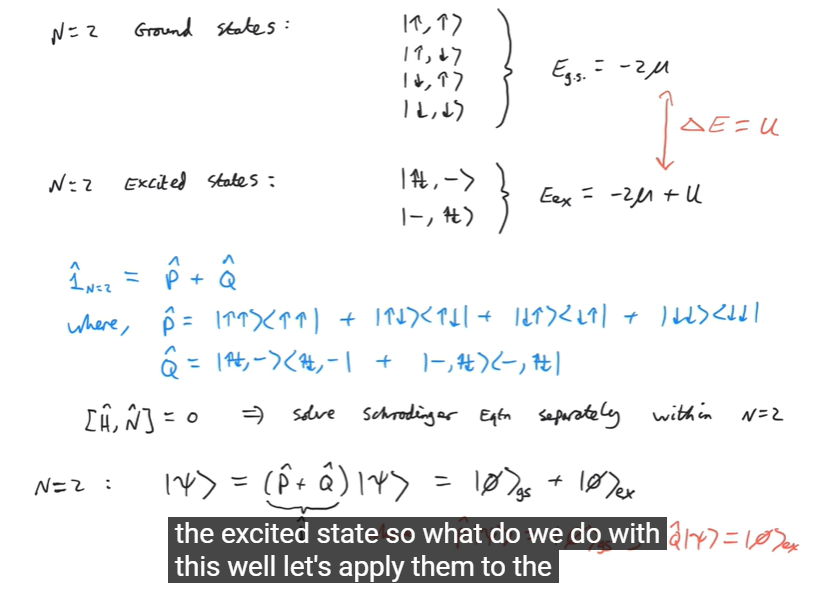 N=2 Ground states: |↑,↑⟩
|↑,↓⟩
|↓,↑⟩
|↓,↓⟩
E_g.s. = -2μ
ΔE = U
N=2 Excited states: |↑↓,-⟩
|-,↑↓⟩
E_ex = -2μ + U
1̂_N=2 = P̂ + Q̂
where, P̂ = |↑↑⟩⟨↑↑| + |↑↓⟩⟨↑↓| + |↓↑⟩⟨↓↑| + |↓↓⟩⟨↓↓|
Q̂ = |↑↓,-⟩⟨↑↓,-| + |-,↑↓⟩⟨-,↑↓|
[Ĥ,N̂] = 0 ⇒ solve Schrodinger Eqtn separately within N=2
N=2 : |ψ⟩ = (P̂ + Q̂)|ψ⟩ = |ø⟩_gs + |ø⟩_ex
Q̂|ψ⟩ = |ø⟩_ex
the excited state so what do we do with
this well let's apply them to the